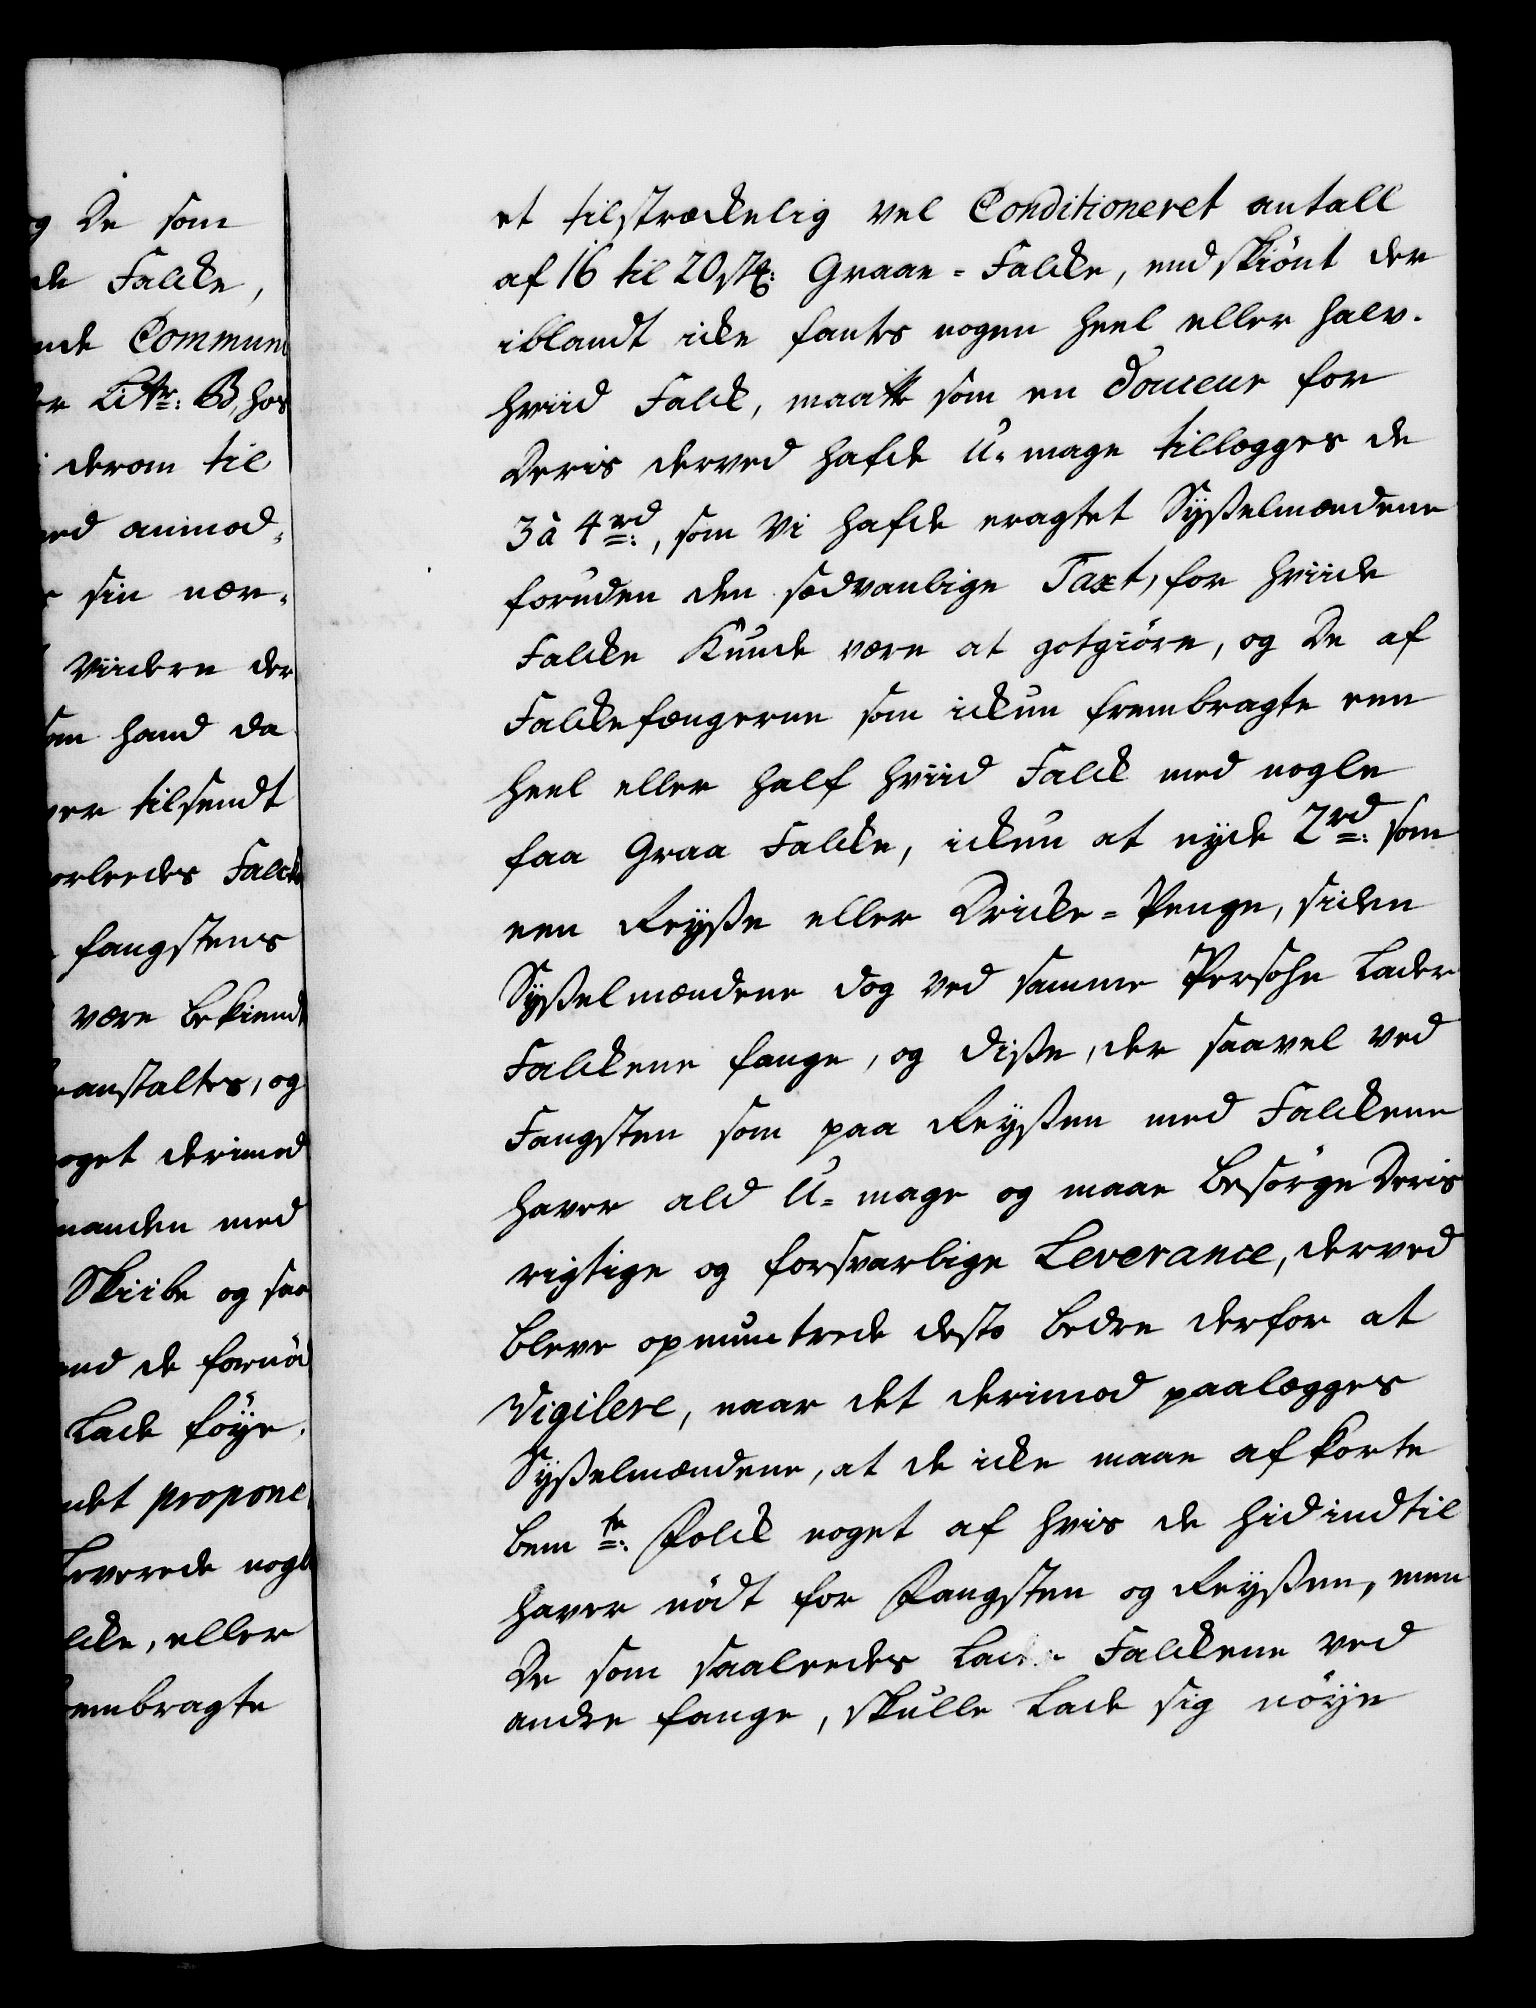 g De som
de Falcke,
nde Commun
er Littr: B, hos
i derom til
ed anmod-
r sin nær-
Viidere der
om hand da
er tilsendt
orleedes Falck
fangstens
være bekiendt
anstaltes, og
oget derimod
manden med
Skiibe og saa
nd de fornöd
Lade föye.
det propone
Leverede nogle
lcke, eller
embragte
et tilstreckelig vel Conditioneret antall
af 16 til 20 stk: Graae-Falcke, endskiönt der
iblandt icke fantes nogen heel eller halv-
hviid Falck, maatte som en Douceur for
Deris derved hafde U-mage tillegges de
3 à 4 rd:, som Vi hafde eragtet Sysselmændene
foruden den sædvanlige Taxt, for hviide
Falcke Kunde være at gotgiöre, og De af
Falckefængerne som ickun frembragte een
heel eller half hviid Falck med nogle
faa Graa Falcke, ickun at nyde 2 rd: som
een Reysse eller Dricke-Penge, siden
Sysselmændene dog ved samme Persohn Lader
Falckene fange, og disse, der saavel ved
Fangsten som paa Reyssen med Falckene
haver ald U-mage og maae besörge Deris
rigtige og forsvarlige Leverance, derved
bleve opmuntrede desto bedre derfor at
Vigilere, naar det derimod paalegges
Sysselmændene, at de icke maae afkorte
bemte: Folck noget af hvis de hidindtil
haver nödt for Fangsten og Reyssen, men
De som saaleedes Lader Falckene ved
andre fange, skulle Lade sig nöye